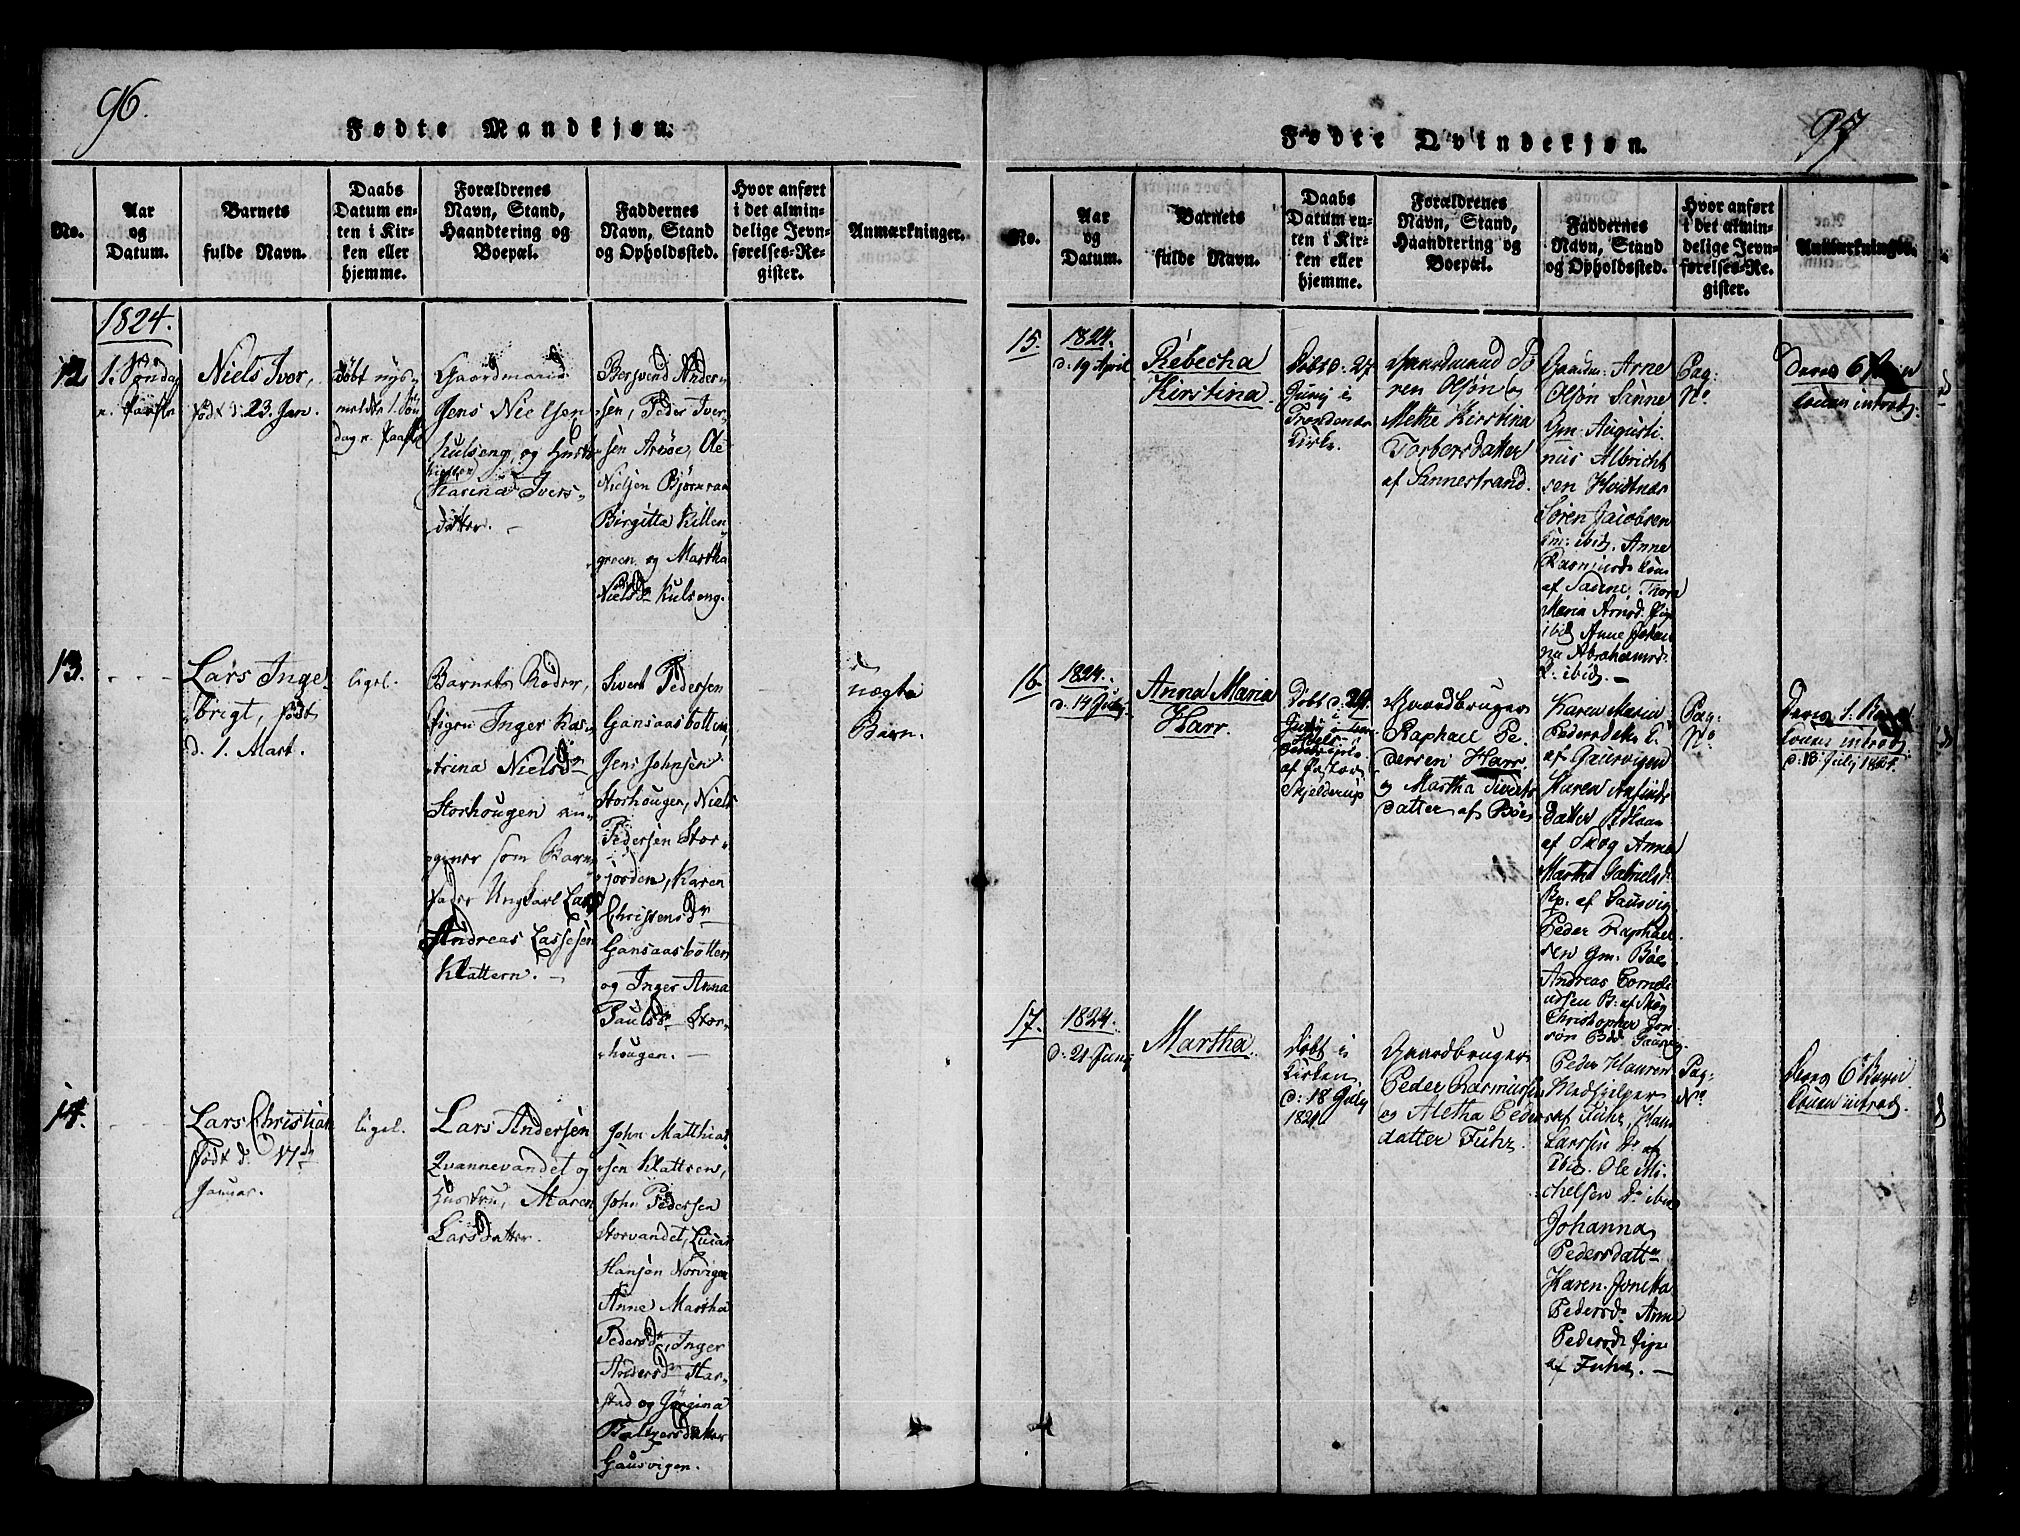 96.
Fødte Mandkjøn.
No.
Aar
og
Datum.
Barnets
fulde Navn.
Daabs
Datum en-
ten i Kir-
ken eller
hjemme.
Forældrenes
Navn, Stand,
Haandtering og
Boepæl.
Faddernes
Navn, Stand
og Opholdssted.
Hvor anført
i det almin-
delige Jevn-
førelses-Re-
gister.
Anmærkninger.
1824.
12
1. Søndag
e. Paaske
Niels Ivor,
født d: 23. Jan.
døbt
meldte 1. Søn
dag e. Paaske
Gaardmand
Jens Nielsen
Kulseng, og Hustr.
Karina Ivers-
datter. -
Bersvend Ander-
sen, Peder Iver-
sen Aröe, Ole
Nielsen Bjørnraa
Birgitta Killen-
green og Martha
Nielsdr Kulseng.
13.
Lars Inge-
brigt, født
d. 1. Mart.
ligel.
Barnets Moder,
Pigen Inger Ka-
trina Nielsdr
Storhougen an-
giver som Barne-
fader Ungkarl Lars
Andreas Lassesen
Klattern. -
Sivert Pedersen
Gansaasbotten,
Jens Johnsen
Storhougen, Niels
Pedersen Stor-
jorden, Karen
Christensdr
Gansaasbotten
og Inger Anna
Paulsdr Stor-
hougen. -
uægte
Barn.
14.
Lars Christian
født d: 17de
Januar.
ligel.
Lars Andersen
Qvannevandet og
Hustru, Maren
Larsdatter.
John Matthias
sen Klattren,
John Pedersen
Storvandet, Lucas
Hansen Norvigen
Anne Martha
Pedersdr, Inger
Andersdr Har-
stad og Jørgina
Baltzersdatter
Gausvigen.
97
Fødte Qvindekjøn.
No.
Aar
og
Datum.
Barnets
fulde Navn.
Daabs
Datum en-
ten i Kir-
ken eller
hjemme.
Forældrenes
Navn, Stand,
Haandtering og
Boepæl.
Faddernes
Navn, Stand
og Opholdssted.
Hvor anført
i det almin-
delige Jevn-
førelses-Re-
gister.
Anmærkninger.
15.
1824.
d. 19 April
Rebecha
Kirstina.
Døbt d. 27
Junij i
Trondenæs
Kirke.
Sö-
ren Olsön og
Methe Kirstina
Torbersdatter
af Sannestrand.
Gaardm: Arne
Olsön Sanne
Gm. Augusti-
nus Albricht
sen Hvistnæs
Sören Jacobsen
Gm. ibid. Anne
Rasmusd. Kone
af Sanne, Thora
Maria Arnsd. Pige
ibid Anne Johan
na Abrahamsd.
P. ibid. -
Pag:
No
Deres 6 Barn
Konen introd.
16
1824.
d. 14 July
Anna Maria
Harr.
Døbt d:
af Pastor
Skjelderup
Gaardbruger
Raphael Pe-
dersen Harr
og Martha Siverts
datter af Böes
Karen Maria
Pedersdtr. P.
af Gausvigen
Karen Anfinds
datter Rdlaan
af Skog Anna
Martha Gabrielsd.
Pp. af Gausvig
Peder Raphael
sen Gm. Böes
Andreas Corneli
ussen B: af Skog
Christopher
Gausvig
Pag:
No
Deres 1. Barn
Konen introd.
d: 18 July 1824.
17.
1824.
d: 21 Junij
Martha.
Døbt i
Kirken
d: 18 July
1824
Gaardbruger
Peder Rasmussen
og Aletha Peders
datter Fuhr.
Peder Hansen
Medhjelper
af Fuhr, Hans
Larssen Do af
ibid. Ole Mi-
chelsen Do ibid
Johanna
Pedersdattr
Karen Jonetta
Pedersdr Anne
Pedersdr Pige
af Fuhr. -
Pag:
No
Deres 6te Barn
Konen introd.